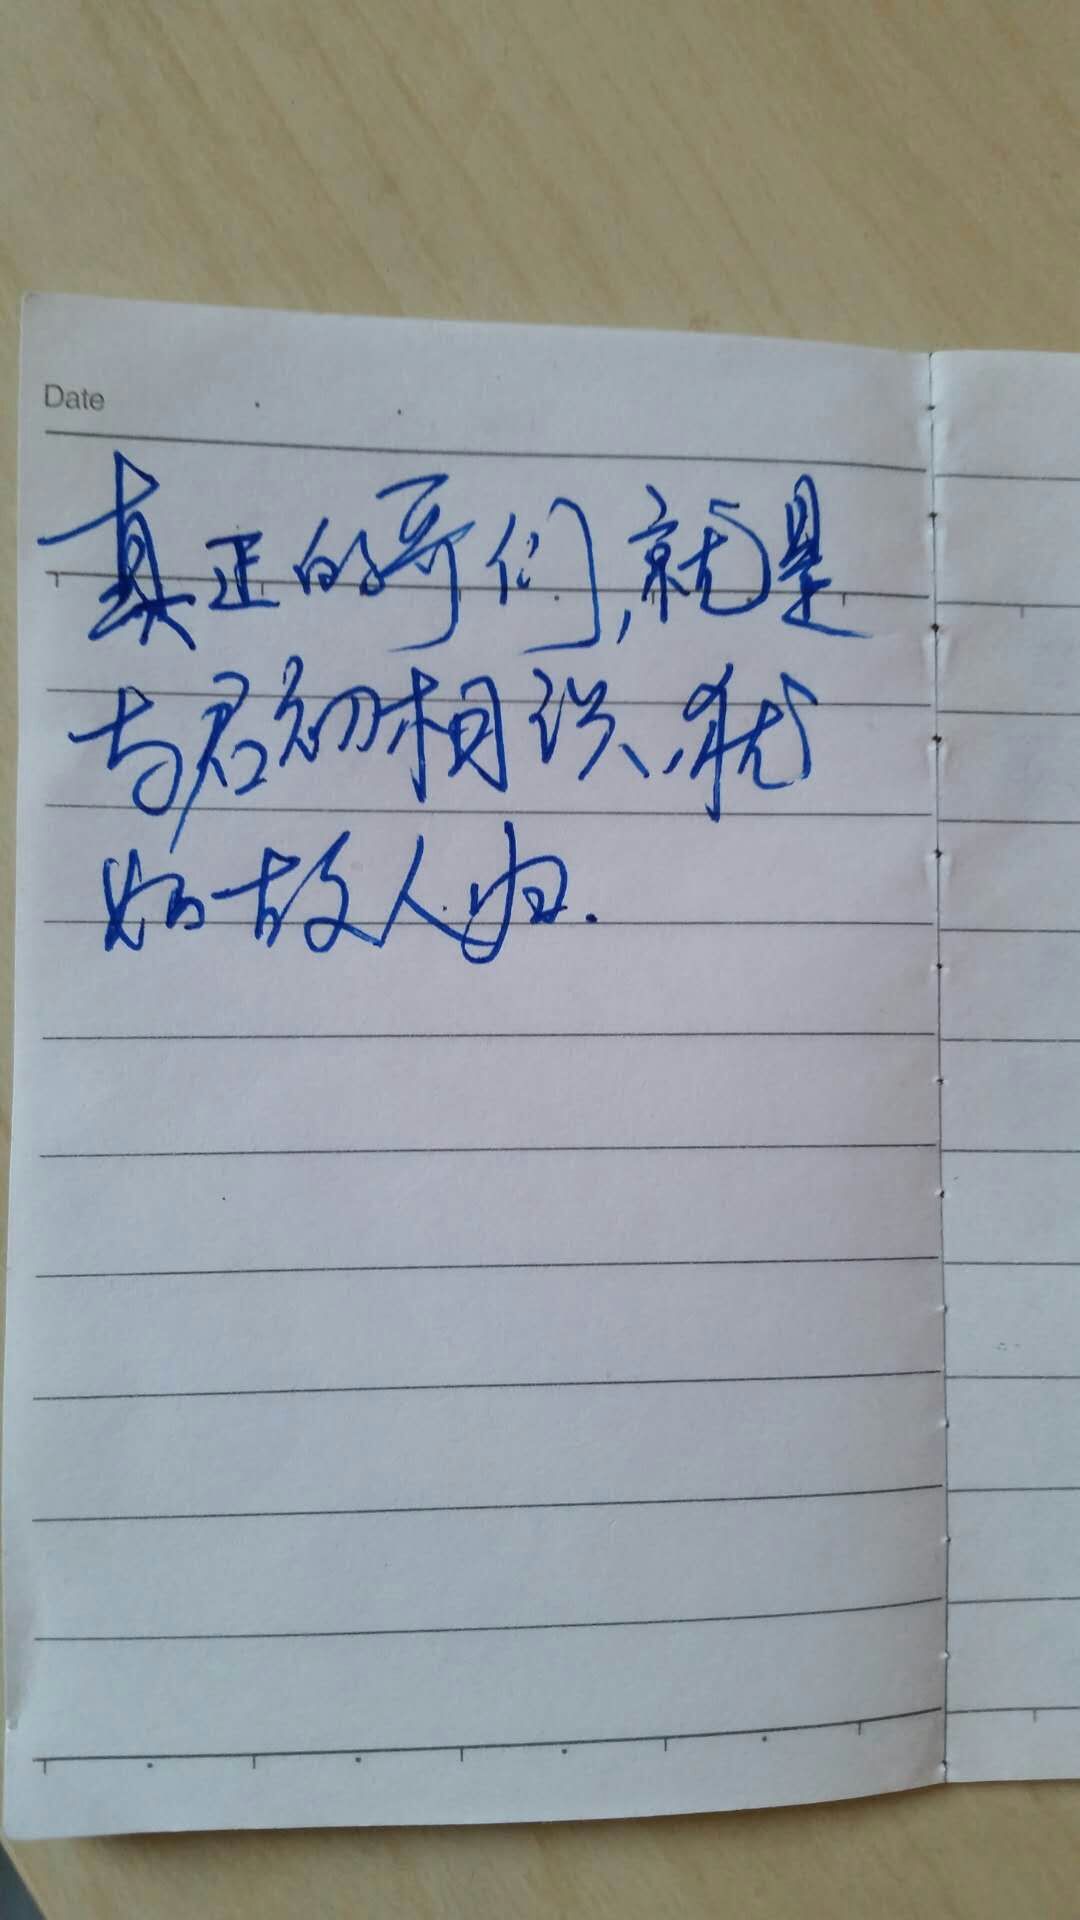 Date
真正的哥们,就是
与君初相识,犹
如故人归.